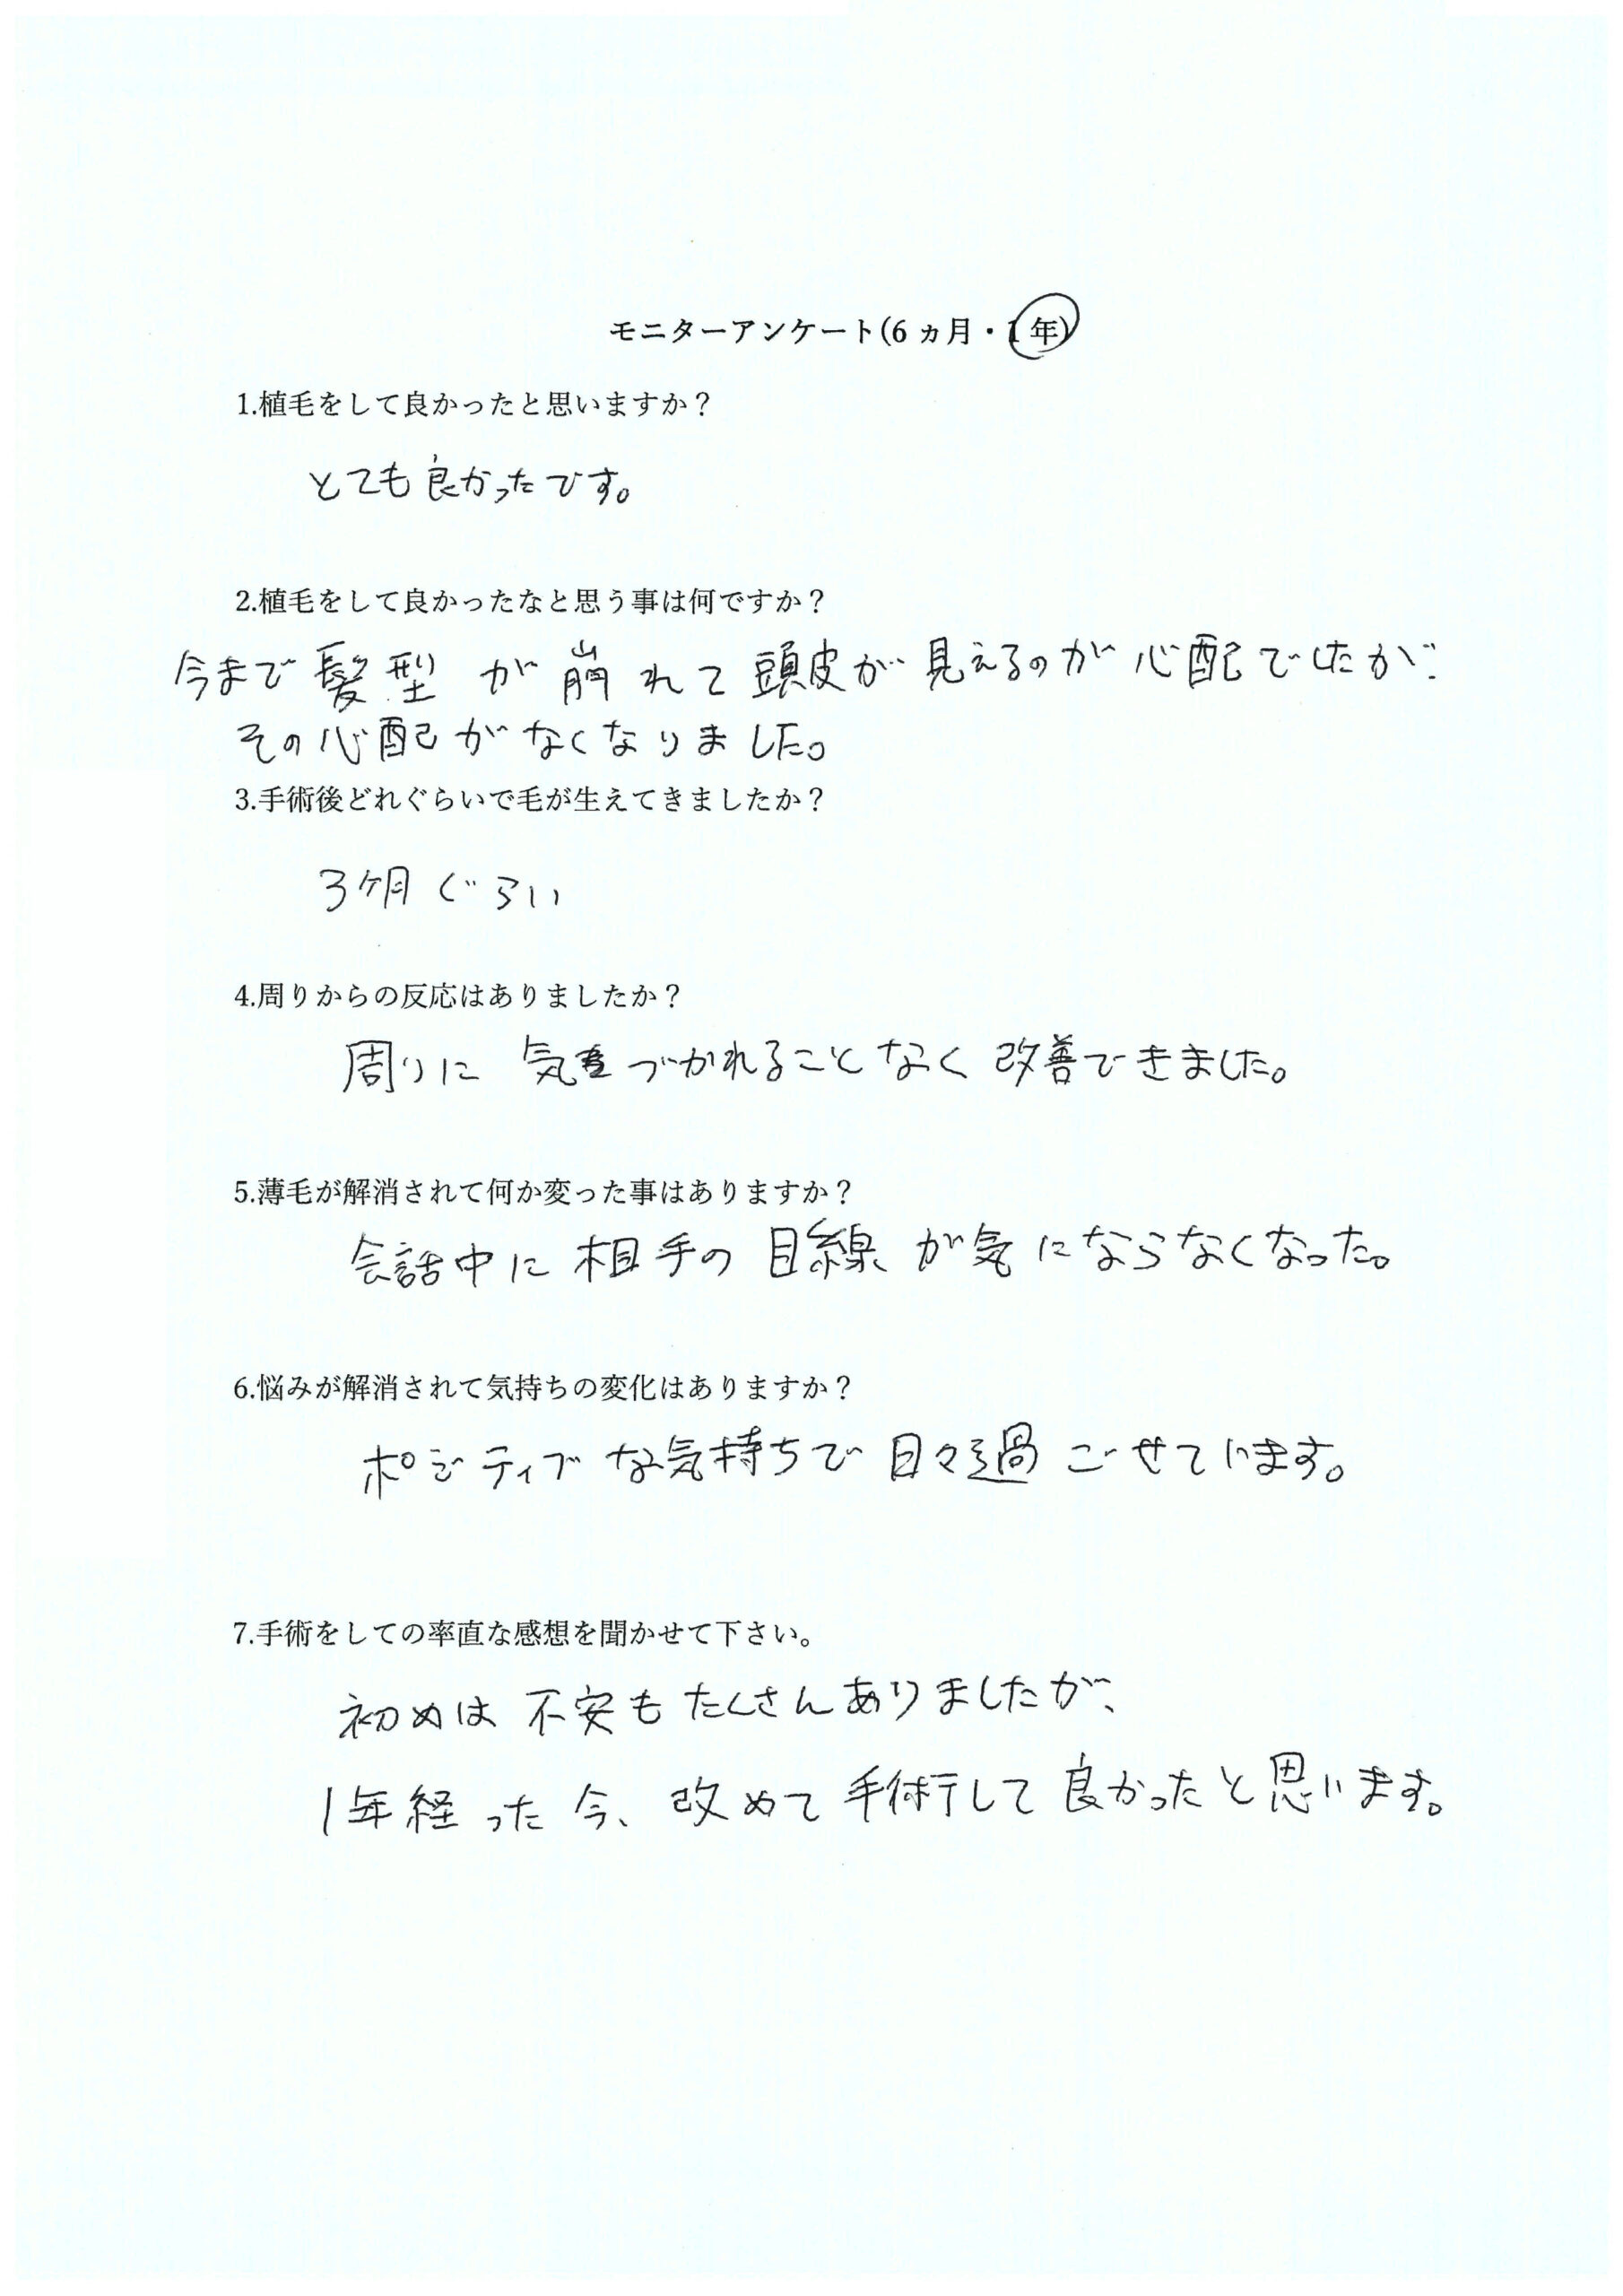 モニターアンケート(6ヵ月・1年)
1.植毛をして良かったと思いますか?
とても良かったです。
2.植毛をして良かったなと思う事は何ですか?
今まで髪型が崩れて頭皮が見えるのが心配でしたが、
その心配がなくなりました。
3.手術後どれぐらいで毛が生えてきましたか?
3ヶ月ぐらい
4.周りからの反応はありましたか?
周りに気づかれることなく改善できました。
5.薄毛が解消されて何か変った事はありますか?
会話中に相手の目線が気にならなくなった。
6.悩みが解消されて気持ちの変化はありますか?
ポジティブな気持ちで日々過ごせています。
7.手術をしての率直な感想を聞かせて下さい。
初めは不安もたくさんありましたが、
1年経った今、改めて手術して良かったと思います。